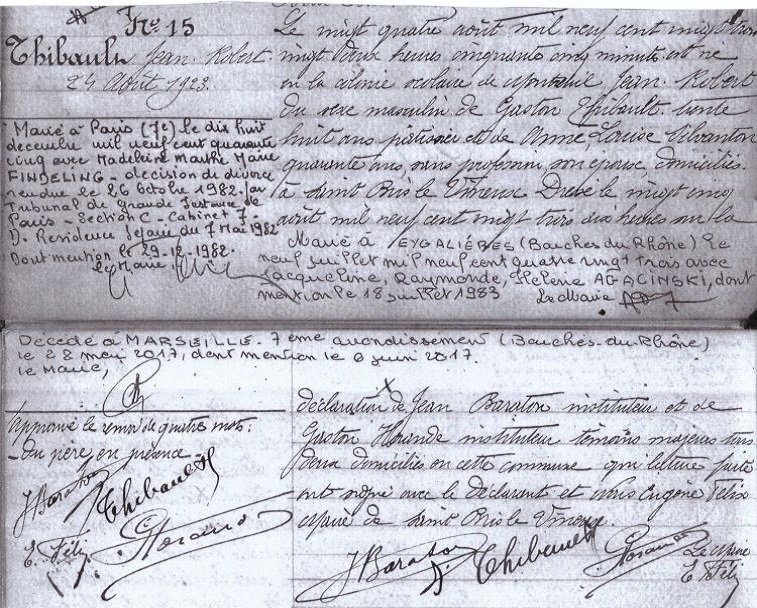 No 15
Thibault Jean Robert
24 Août 1923.
Marié à Paris (7e) le dix huit
decembre mil neuf cent quarante
cinq avec Madeleine Marthe Marie
FINDELING - decision de divorce
rendue le 26 Octobre 1982 par
Tribunal de Grande Instance de
Paris - Section C - Cabinet 7 -
D. Residence séparée du 7 Mai 1982
Dont mention le 29-12-1982.
le Maire
Le vingt quatre août mil neuf cent vingt trois
vingt deux heures cinquante cinq minutes est né
en la colonie scolaire de Jean Robert
du sexe masculin de Gaston Thibault trente
huit ans et de Anne Louise
quarante ans, sans profession, son épouse, domiciliés
à Saint Bris le Vineux Dressé le vingt cinq
août mil neuf cent vingt trois dix heures sur la
Marié à EYGALIÈRES (Bouches du Rhône) le
neuf juillet mil neuf cent quatre vingt trois avec
Jacqueline, Raymonde, Hélène AGACINSKI, dont
mention le 18 juillet 1983 Le Maire
Décédé à MARSEILLE - 7ème arrondissement (Bouches-du-Rhône)
le 28 mai 2017, dont mention le 6 juin 2017.
le Maire,
Approuvé le renvoi de quatre mots:
- du père, en présence -
J Baraton Thibault
E. Félix
déclaration X de Jean Baraton instituteur et de
Gaston instituteur témoins majeurs tous
deux domiciliés en cette commune qui lecture faite
ont signé avec le déclarant et Nous Eugène Félix
Maire de Saint Bris le Vineux.
J Baraton Thibault Le Maire
E Félix